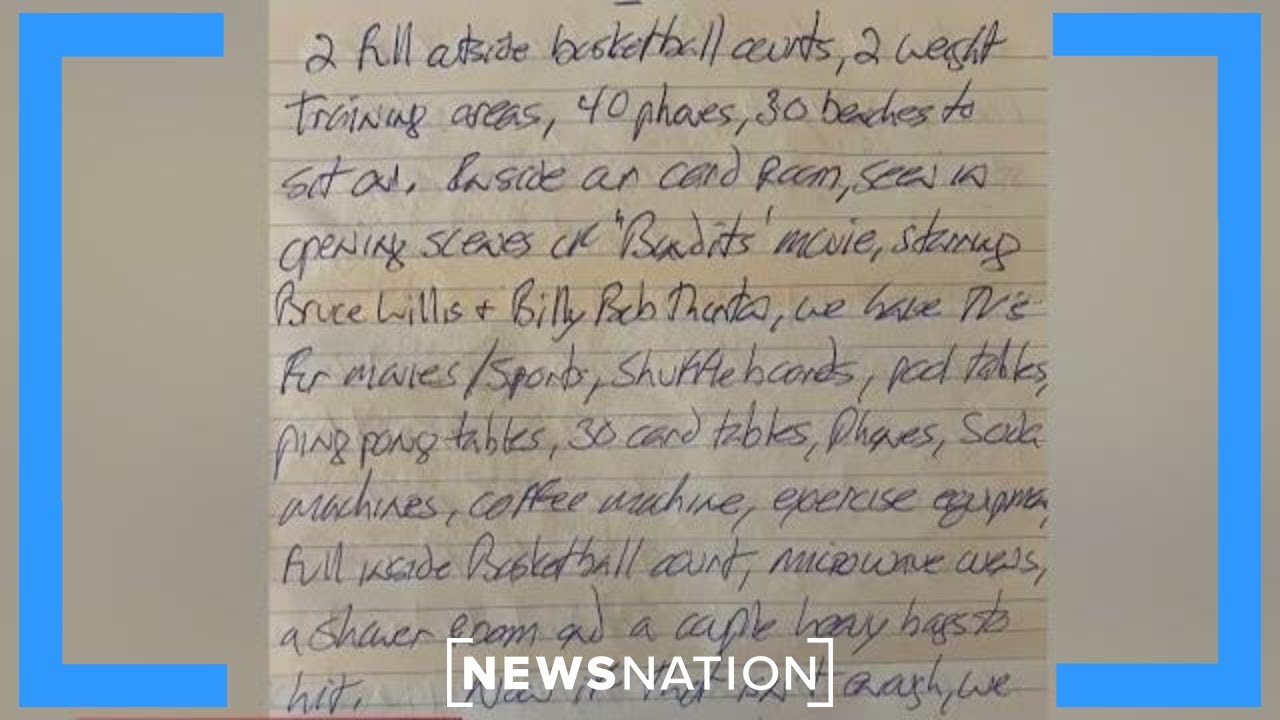 2 full outside basketball courts, 2 weight
training areas, 40 phones, 30 benches to
sit on. Inside our card Room, seen in
opening scenes of "Bandits" movie, starring
Bruce Willis + Billy Bob Thornton, we have TV's
for movies/Sports, Shuffleboards, pool tables,
ping pong tables, 30 card tables, Phones, Soda
machines, coffee machine, exercise equipmen
full inside Basketball court, microwave ovens,
a shower Room and a couple heavy bags to
hit. Now if that isn't enough, we
NEWSNATION